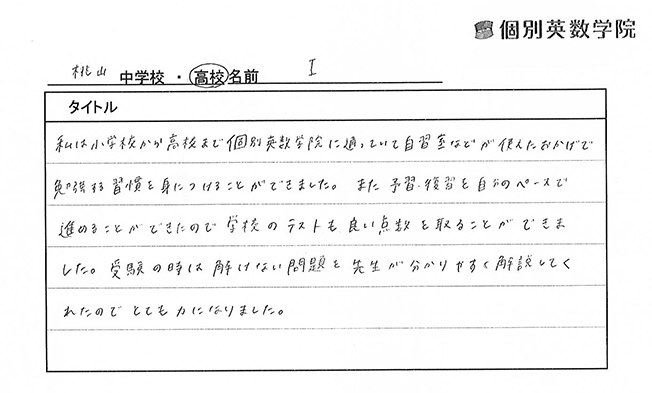 個別英数学院
桃山 中学校・高校 名前 I
タイトル
私は小学校から高校まで個別英数学院に通っていて自習室などが使えたおかげで
勉強する習慣を身につけることができました。また予習・復習を自分のペースで
進めることができたので学校のテストも良い点数を取ることができま
した。受験の時は解けない問題を先生が分かりやすく解説してく
れたのでとても力になりました。